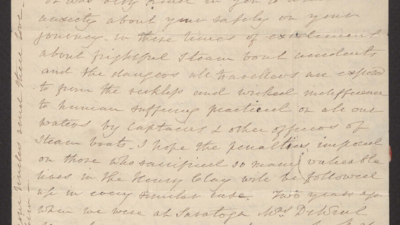 anxiety about your safety on your
journey. in these times of excitement
about frightful Steam boat accidents
and the dangers all travellers are exposed
to from the reckless and wicked indifference
to human suffering practiced on all our
waters by Captains & other officers of
Steam boats. I hope the penalties imposed
on those who sacrificed so many valuable
lives in the Henry Clay will be followed
up in every similar case. Two years ago
when we were at Saratoga Mrs